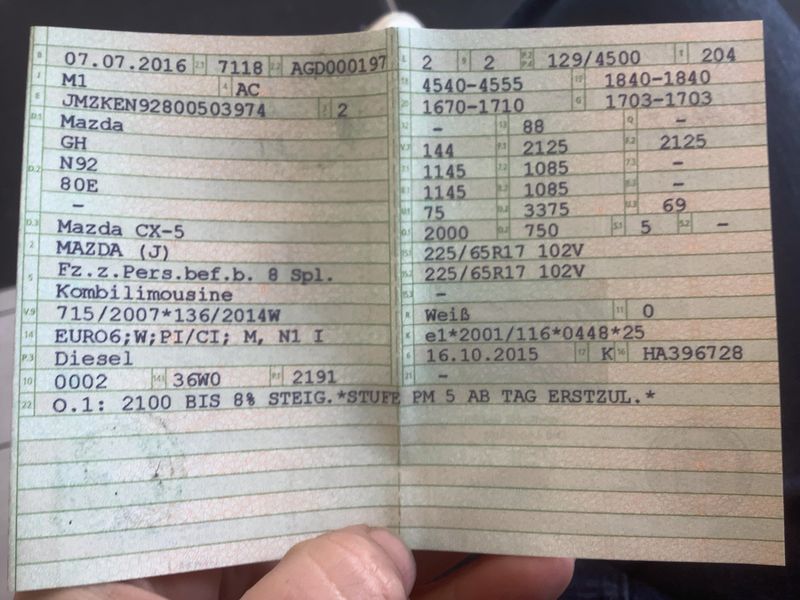 B 07.07.2016 2.1 7118 2.2 AGD000197
J M1 4 AC
E JMZKEN92800503974 3 2
D.1 Mazda
GH
D.2 N92
80E
–
D.3 Mazda CX-5
2 MAZDA (J)
5 Fz.z.Pers.bef.b. 8 Spl.
Kombilimousine
V.9 715/2007*136/2014W
14 EURO6;W;PI/CI; M, N1 I
P.3 Diesel
10 0002 14.1 36W0 P.1 2191
22 O.1: 2100 BIS 8% STEIG.*STUFE PM 5 AB TAG ERSTZUL.*
L 2 9 2 P.2 P.4 129/4500 T 204
18 4540-4555 19 1840-1840
20 1670-1710 G 1703-1703
12 – 13 88 Q –
V.7 144 F.1 2125 F.2 2125
7.1 1145 7.2 1085 7.3 –
8.1 1145 8.2 1085 8.3 –
U.1 75 U.2 3375 U.3 69
O.1 2000 O.2 750 S.1 5 S.2 –
15.1 225/65R17 102V
15.2 225/65R17 102V
15.3 –
R Weiß 11 0
K e1*2001/116*0448*25
6 16.10.2015 17 K 16 HA396728
21 –